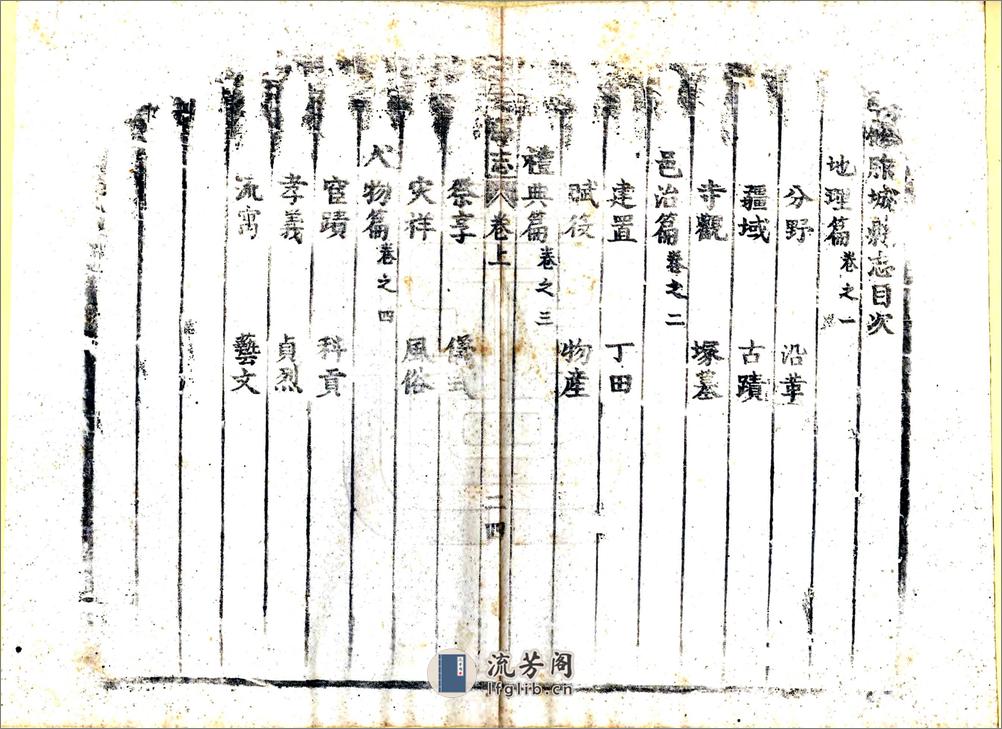 城縣志目次
地理篇卷之一
分野 沿革
疆域 古蹟
寺觀 塚墓
邑治篇卷之二
建置 丁田
賦役 物產
禮典篇卷之三
志 卷上 二四
祭享 儀式
灾祥 風俗
人物篇卷之四
宦蹟 科貢
孝義 貞烈
流寓 藝文
流芳阁
lfglib.cn